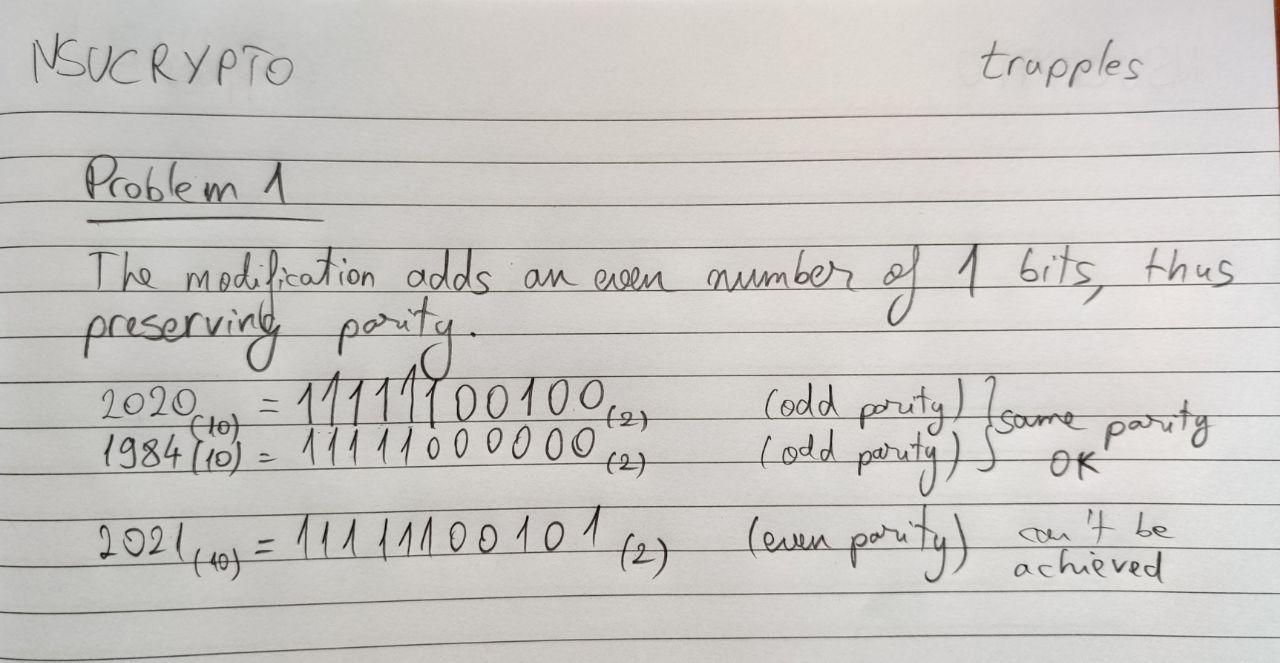 NSUCRYPTO trapples
Problem 1
The modification adds an even number of 1 bits, thus
preserving parity.
2020(10) = 11111100100(2) (odd parity) } same parity
1984(10) = 11111000000(2) (odd parity) OK
2021(10) = 11111100101(2) (even parity) can't be
achieved